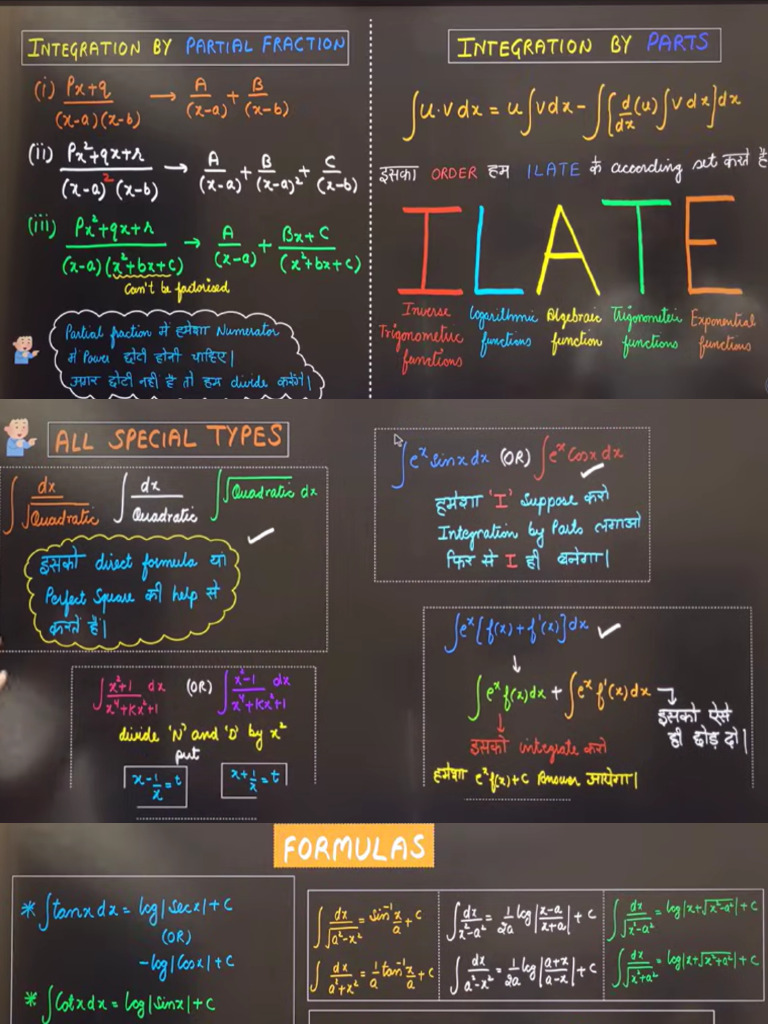 INTEGRATION BY PARTIAL FRACTION
(i) Px+q/(x-a)(x-b) → A/(x-a) + B/(x-b)
(ii) Px²+qx+r/(x-a)²(x-b) → A/(x-a) + B/(x-a)² + C/(x-b)
(iii) Px²+qx+r/(x-a)(x²+bx+c) → A/(x-a) + Bx+C/(x²+bx+c)
Can't be factorised
Partial fraction में हमेशा Numerator
में Power छोटी होनी चाहिए।
अगर छोटी नहीं है तो हम divide करेंगे।
INTEGRATION BY PARTS
∫u·v dx = u∫vdx - ∫[d/dx(u)∫vdx]dx
इसका ORDER हम ILATE के according set करते हैं
ILATE
Inverse Trigonometric functions
Logarithmic functions
Algebraic function
Trigonometric functions
Exponential functions
ALL SPECIAL TYPES
∫dx/√Quadratic ∫dx/Quadratic ∫√Quadratic dx
इसको direct formula या
Perfect Square की help से
करते हैं।
∫x²+1/x⁴+kx²+1 dx (OR) ∫x²-1/x⁴+kx²+1 dx
divide 'N' and 'D' by x²
put
x-1/x=t x+1/x=t
∫eˣsinx dx (OR) ∫eˣcosx dx
हमेशा 'I' Suppose करो
Integration by Parts लगाओ
फिर से I ही बनेगा।
∫eˣ[f(x)+f'(x)]dx
∫eˣf(x)dx + ∫eˣf'(x)dx
इसको integrate करो
इसको ऐसे
ही छोड़ दो।
हमेशा eˣf(x)+c Answer आयेगा।
FORMULAS
* ∫tanx dx = log|secx|+c
(OR)
-log|cosx|+c
* ∫Cotx dx = log|sinx|+c
∫dx/√a²-x² = sin⁻¹x/a+c
∫dx/a²+x² = 1/a tan⁻¹x/a+c
∫dx/x²-a² = 1/2a log|x-a/x+a|+c
∫dx/a²-x² = 1/2a log|a+x/a-x|+c
∫dx/√x²-a² = log|x+√x²-a²|+c
∫dx/√x²+a² = log|x+√x²+a²|+c